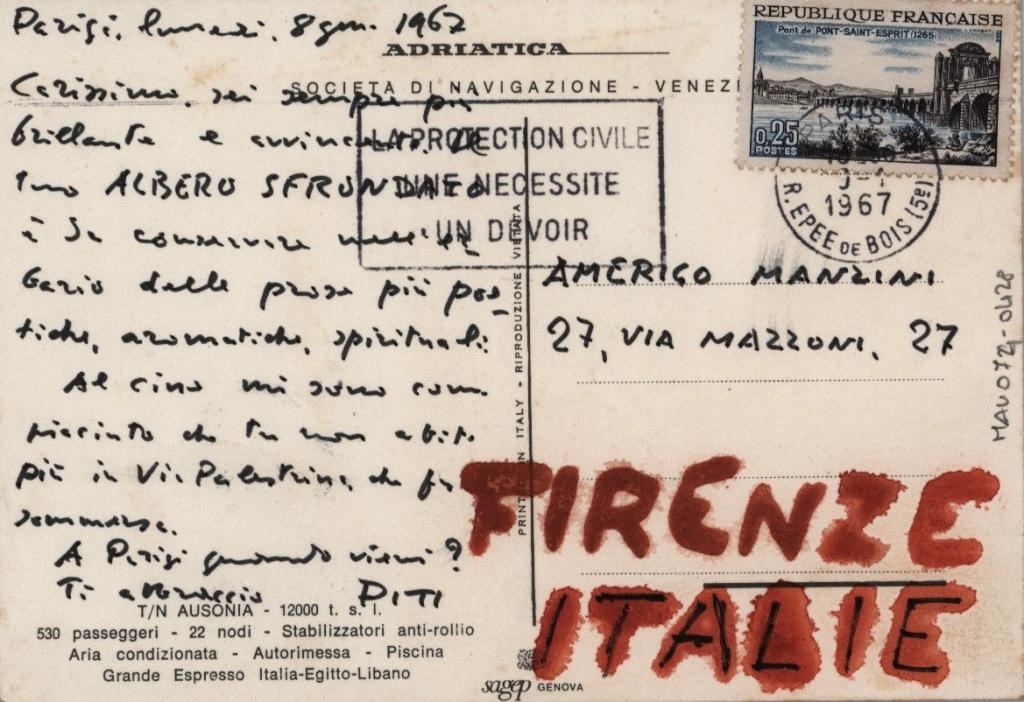 Parigi, lunedì, 8 gen. 1967
ADRIATICA
SOCIETA DI NAVIGAZIONE - VENEZI
Carissimo, sei sempre più
brillante e avvincente. Il
tuo ALBERO SFRONDATO
è da conservare nell'
bario delle prose più poe-
tiche, aromatiche, spirituali.
Al cino mi sono com
piaciuto che tu non abiti
più in Via Palestrina, che fu
sommersa.
A Parigi quando vieni?
Ti abbraccio DITI
T/N AUSONIA - 12000 t. s. l.
530 passeggeri - 22 nodi - Stabilizzatori anti-rollio
Aria condizionata - Autorimessa - Piscina
Grande Espresso Italia-Egitto-Libano
LA PROTECTION CIVILE
UNE NECESSITE
UN DEVOIR
PRINTED IN ITALY - RIPRODUZIONE VIETATA
sagep GENOVA
REPUBLIQUE FRANÇAISE
Pont de PONT-SAINT-ESPRIT (1265)
0,25
POSTES
PARIS
1967
R. EPEE DE BOIS (5e)
AMERIGO MANZINI
27, VIA MAZZONI, 27
FIRENZE
ITALIE
MAU0724-0428